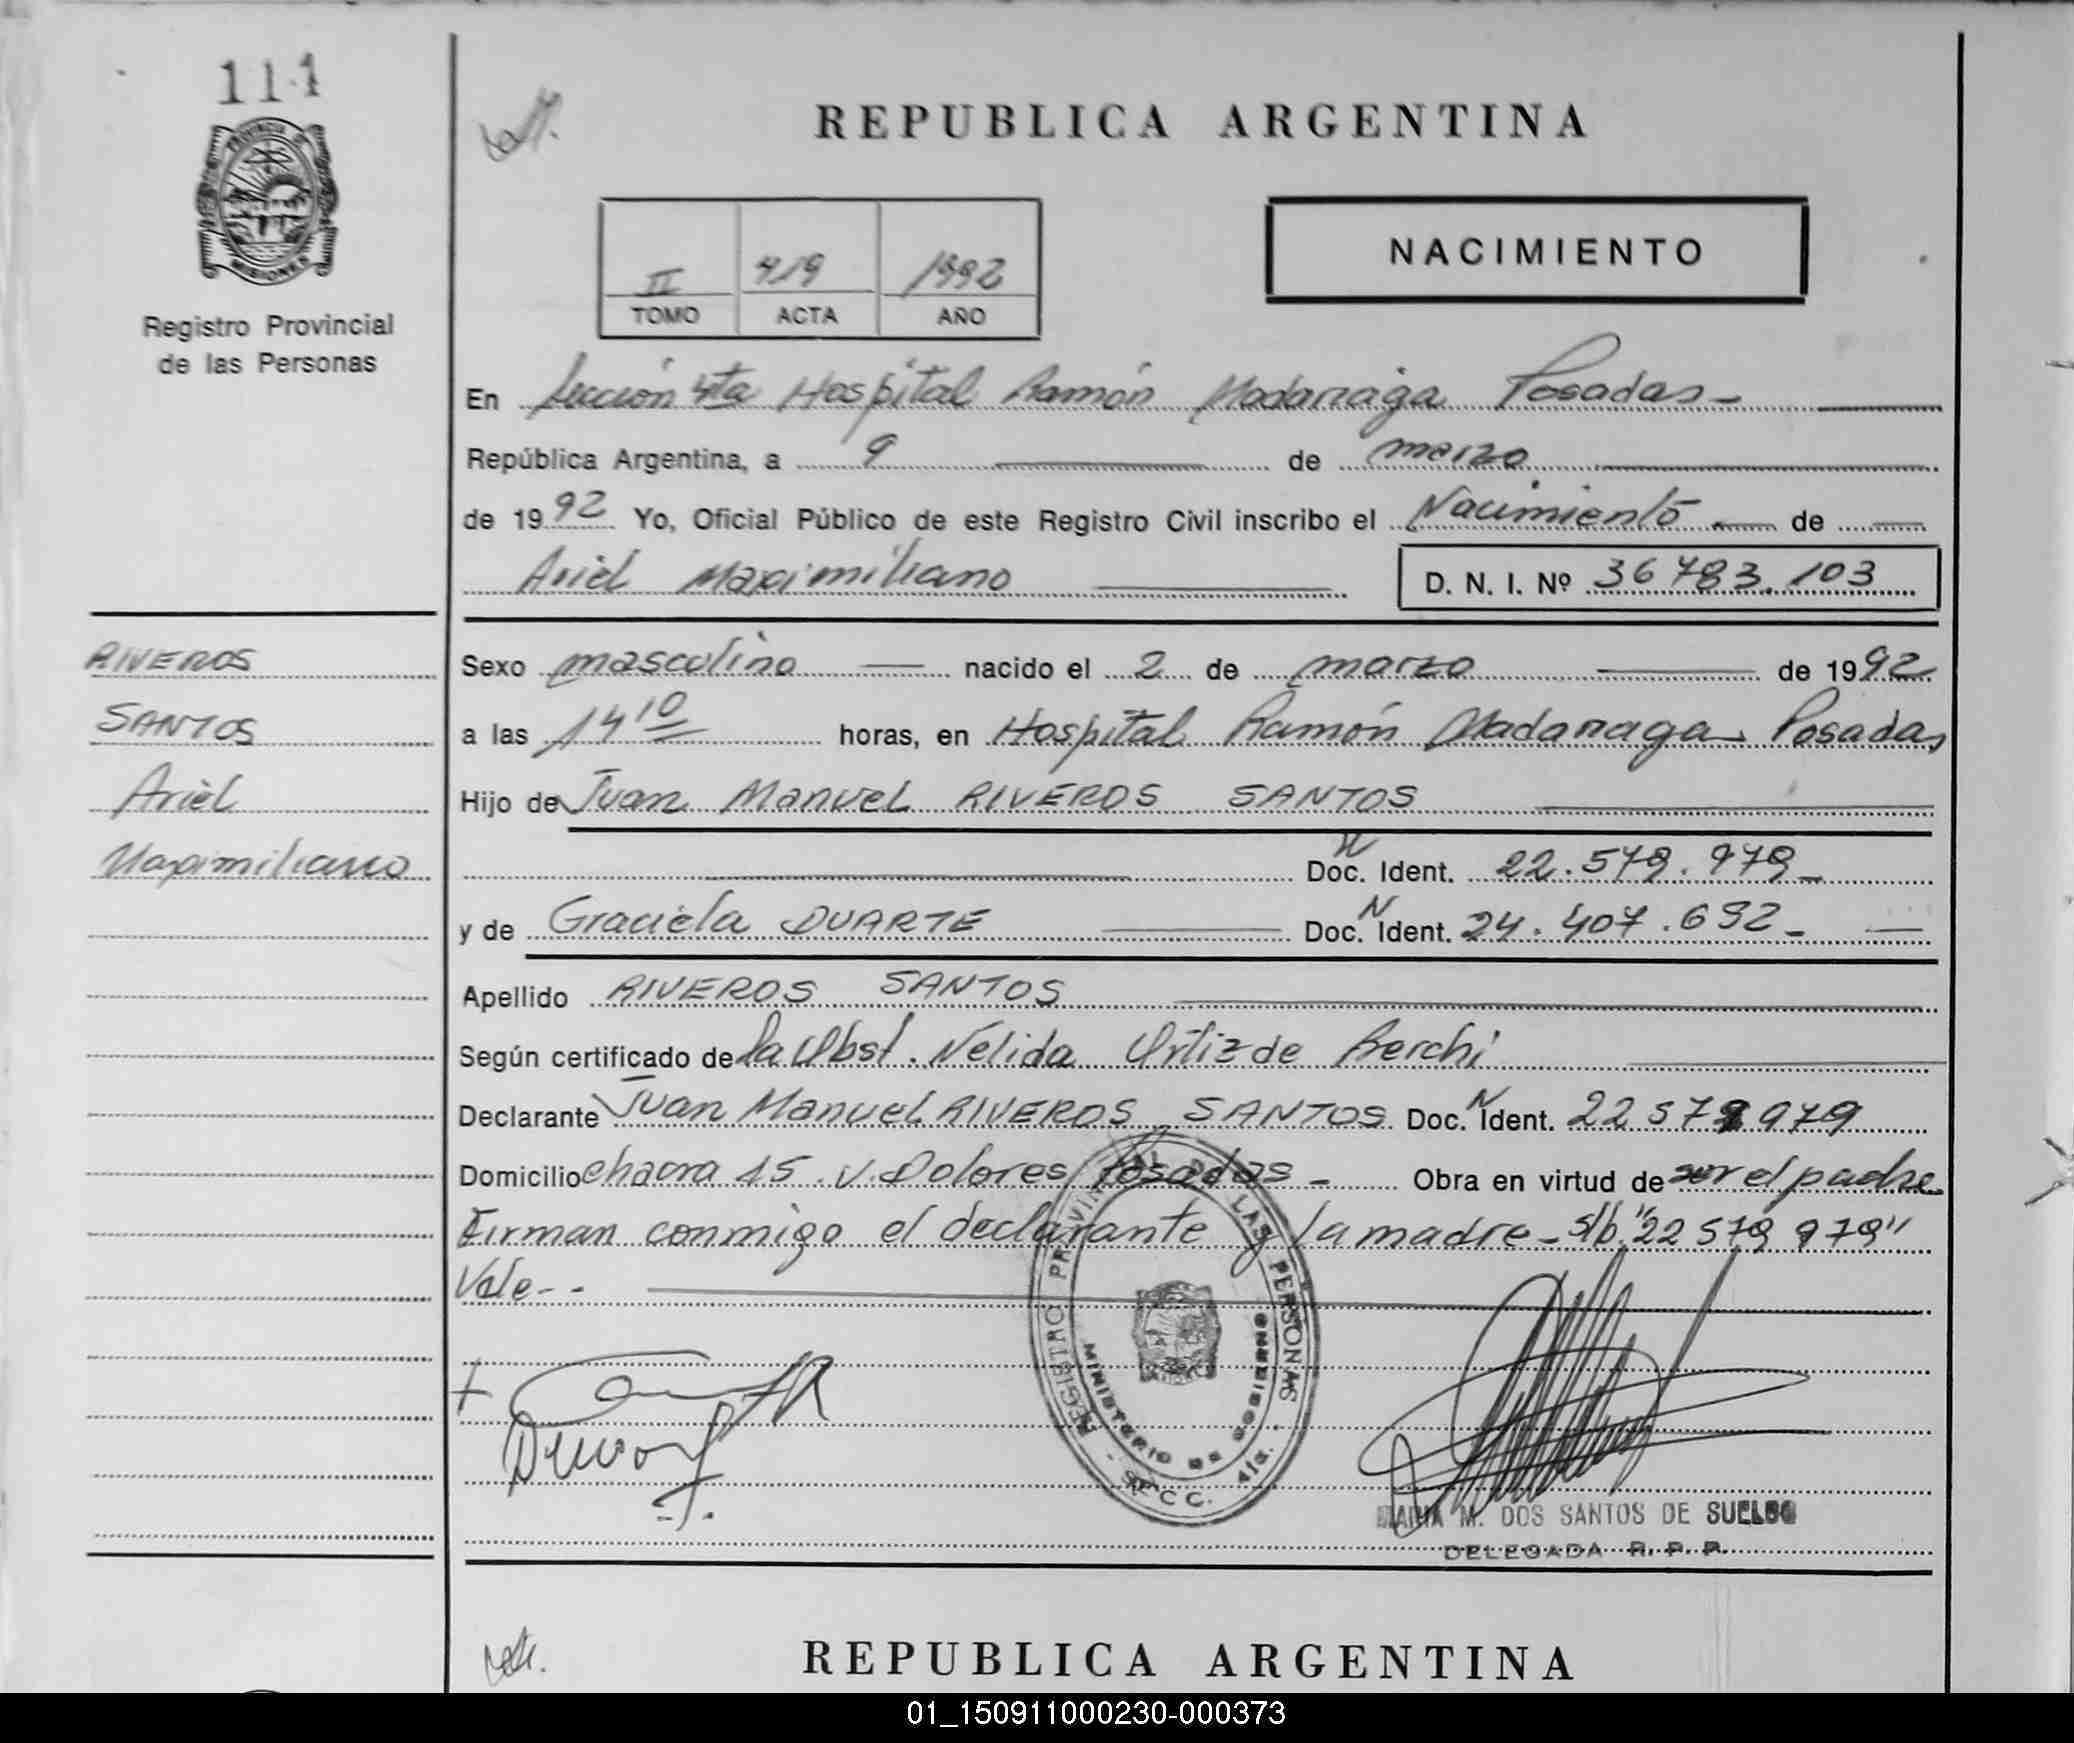 111
PROVINCIA DE
MISIONES
Registro Provincial
de las Personas
REPUBLICA ARGENTINA
NACIMIENTO
II 419 1992
TOMO ACTA AÑO
En Sección 4ta Hospital Ramón Madariaga Posadas-
República Argentina, a 9 de marzo
de 1992 Yo, Oficial Público de este Registro Civil inscribo el Nacimiento de
Ariel Maximiliano D. N. I. Nº 36783.103
RIVEROS
SANTOS
Ariel
Maximiliano
Sexo masculino nacido el 2 de marzo de 1992
a las 14 10 horas, en Hospital Ramón Madariaga Posadas
Hijo de Juan Manuel RIVEROS SANTOS
Doc. N Ident. 22.579.979-
y de Graciela DUARTE Doc. N Ident. 24.407.692-
Apellido RIVEROS SANTOS
Según certificado de la Obst. Nelida Ortiz de Berchi
Declarante Juan Manuel RIVEROS SANTOS Doc. N Ident. 22 579 979
Domicilio chacra 15. V. Dolores Posadas- Obra en virtud de ser el padre
Firman conmigo el declarante y la madre- s/b "22 579 979"
Vale--
REGISTRO PROVINCIAL DE LAS PERSONAS
MINISTERIO DE GOBIERNO
4ta.
MARIA M. DOS SANTOS DE SUELDO
DELEGADA R. P. P.
REPUBLICA ARGENTINA
01_150911000230-000373